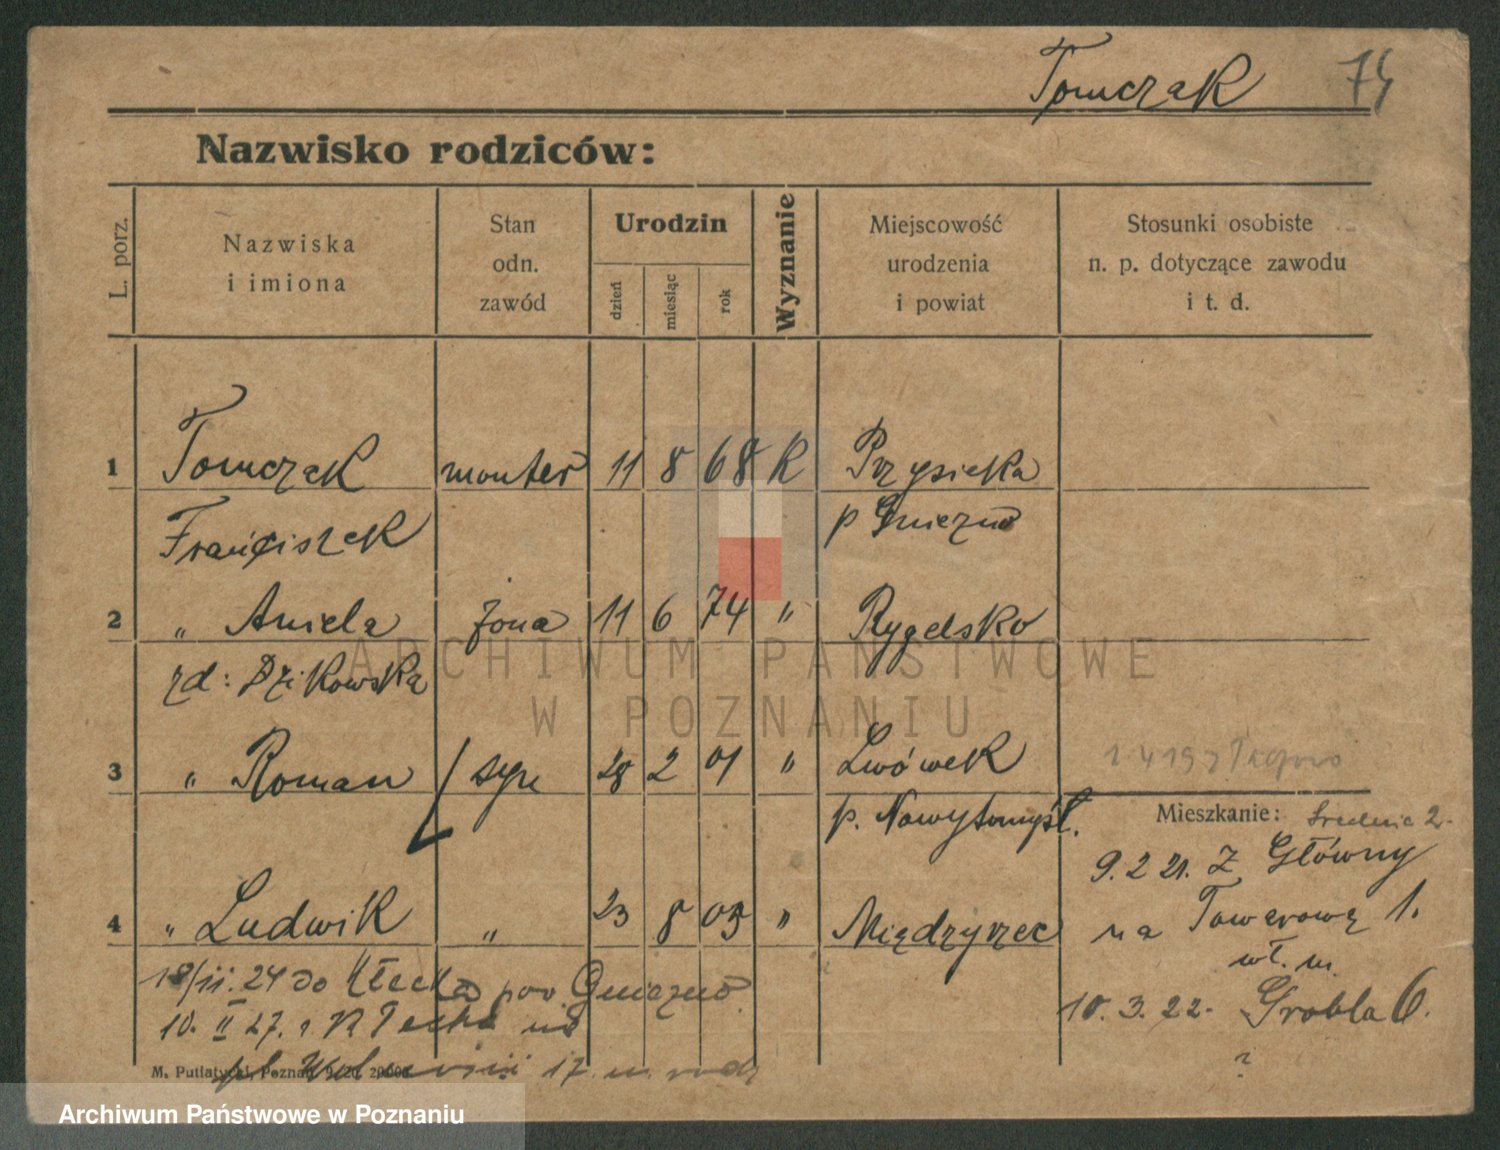 Tomczak 74
Nazwisko rodziców:
L. porz.
Nazwiska
i imiona
Stan
odn.
zawód
Urodzin
dzień
miesiąc
rok
Wyznanie
Miejscowość
urodzenia
i powiat
Stosunki osobiste
n. p. dotyczące zawodu
i t. d.
1 Tomczak monter 11 8 68 K Przysieka
Franciszek p Gniezno
2 " Aniela żona 11 6 74 " Rygelsko
zd: Dzikowska
3 " Roman syn 28 2 01 " Lwówek
p. Nowytomyśl.
1 4 19
Mieszkanie: Średnia 2.
9.2 21. Z Główny
na Towarową 1.
wł. m.
10. 3. 22. Grobla 6.
?
4 " Ludwik " 23 8 03 " Międzyrzec
18/11. 24 do Kłecka pow. Gniezno
10. II 27. z Kłecka na
17 m. rodz
M. Putiatycki, Poznań 9. 20. 20000
ARCHIWUM PAŃSTWOWE
W POZNANIU
Archiwum Państwowe w Poznaniu